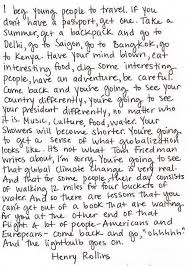 I beg young people to travel. If you
don't have a passport, get one. Take a
summer, get a backpack and go to
Delhi, go to Saigon, go to Bangkok, go
to Kenya. Have your mind blown, eat
interesting food, dig some interesting
people, have an adventure, be careful.
Come back and you're going to see your
country differently, you're going to see
your president differently, no matter who
it is. Music, culture, food, water. Your
showers will become shorter. You're going
to get a sense of what globalization
looks like. It's not what Tom Friedman
writes about, I'm sorry. You're going to see
that global climate change is very real.
And that for some people, their day consists
of walking 12 miles for four buckets of
water. And so there are lessons that you
can't get out of a book that are waiting
for you at the other end of that
flight. A lot of people - Americans and
Europeans - come back and go, "ohhhhh."
And the lightbulb goes on.
Henry Rollins